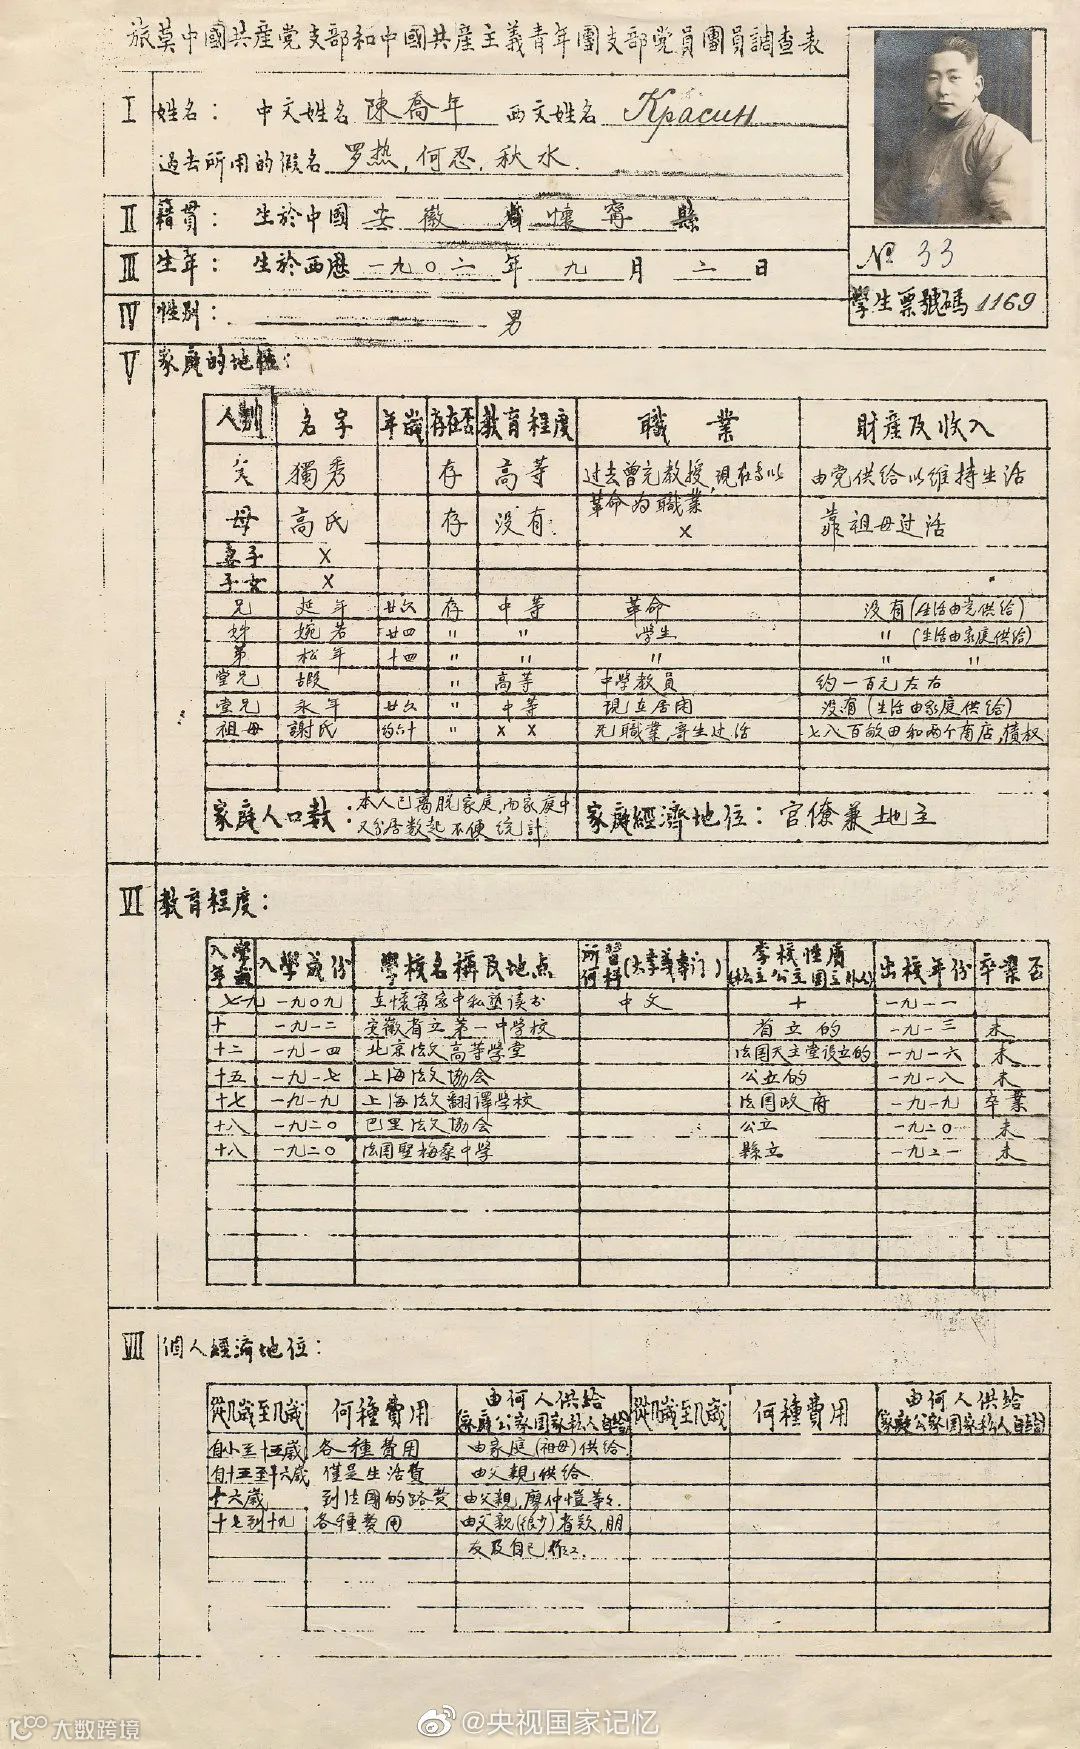 旅莫中國共産党支部和中國共産主義青年團支部党員團員調查表
I 姓名： 中文姓名 陳喬年 西文姓名 Красин
過去所用的假名 罗热，何忍，秋水.
II 籍貫： 生於中國 安徽 省 懷甯 縣
III 生年： 生於西歷 一九〇二 年 九 月 二 日
№ 33
IV 性别： 男
學生票號碼 1169
V 家庭的地位：
人别 名字 年歲 存在否 教育程度 職業 財産及收入
父 獨秀 存 高等 过去曾充教授，現在专以革命为職業 由党供给以维持生活
母 高氏 存 没有 × 靠祖母过活
妻子 ×
子女 ×
兄 延年 廿六 存 中等 革命 没有(生活由党供给)
姊 婉若 廿四 〃 〃 学生 〃 (生活由家庭供给)
弟 松年 十四 〃 〃 〃 〃 〃
堂兄 遐 〃 高等 中學教員 约一百元左右
堂兄 永年 廿六 〃 中等 現在居闭 没有(生活由家庭供给)
祖母 謝氏 约六十 〃 × × 无職業，寄生过活 七八百畝田和两个商店，債权
家庭人口数：本人已离脱家庭，而家庭中又分居数起不便统計
家庭經濟地位：官僚兼地主
VI 教育程度：
入學年歲 入學年份 學校名稱及地点 所習何科(大學義專门) 學校性质(私立公立国立外人) 出校年份 卒業否
七九 一九〇九 在懷甯家中私塾读书 中文 十 一九一一
十 一九一二 安徽省立第一中学校 省立的 一九一三 未
十二 一九一四 北京法文高等学堂 法国天主堂設立的 一九一六 未
十五 一九一七 上海法文協会 公立的 一九一八 未
十七 一九一九 上海法文翻譯学校 法国政府 一九一九 卒業
十八 一九二〇 巴里法文協会 公立 一九二〇 未
十八 一九二〇 法国聖梅桑中学 縣立 一九二一 未
VII 個人經濟地位：
從几歲至几歲 何種費用 由何人供給(家庭公家国家私人自给) 從几歲至几歲 何種費用 由何人供給(家庭公家国家私人自给)
自小至十五歲 各種費用 由家庭(祖母)供给
自十五至十六歲 僅是生活費 由父親供给
十六歲 到法國的路費 由父親，廖仲愷等々.
十七到十九 各種費用 由父親(很少)者欵，朋
友及自己作工.
大数跨境
@央视国家记忆